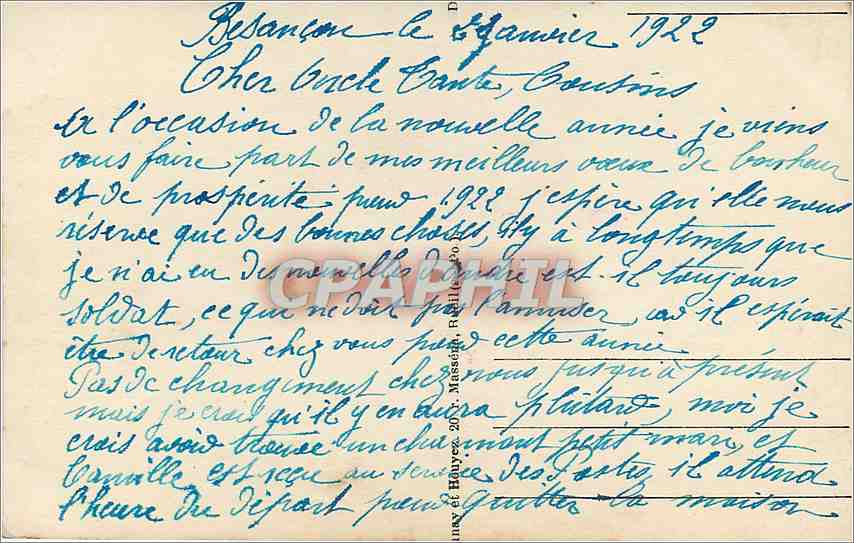 Besançon le 2 Janvier 1922
Cher Oncle Tante, Cousins
A l'occasion de la nouvelle année je viens
vous faire part de mes meilleurs vœux de bonheur
et de prospérité pour 1922 j'espère qu'elle nous
réserve que des bonnes choses, il y à longtemps que
je n'ai eu des nouvelles d'andre est-il toujours
soldat, ce qui ne doit pas l'amuser, car il espérait
être de retour chez vous pour cette année
Pas de changement chez nous jusqu'à présent
mais je crois qu'il y en aura plutard, moi je
crois avoir trouvé un charmant petit mari, et
Camille est reçu au service des Postes il attend
l'heure du départ pour quitter la maison
CPAPHIL
nay et Houyez, 20, r. Masséna, Rueil (S.-
D